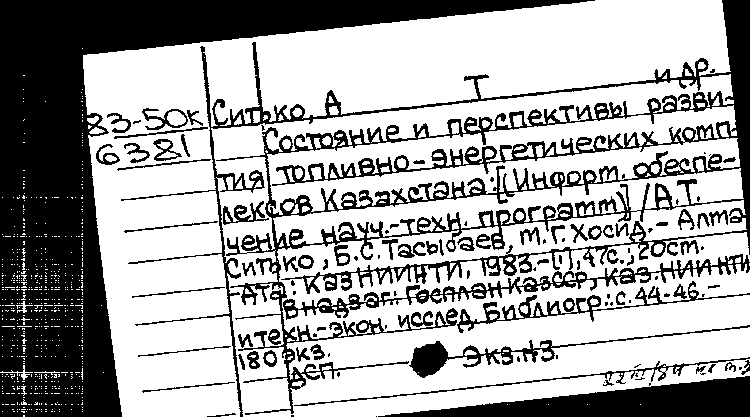 83-50к Ситько, А Т и др.
6381 Состояние и перспективы разви-
тия топливно-энергетических комп-
лексов Казахстана: [(Информ. обеспе-
чение науч.-техн. программ)] / А.Т.
Ситько, Б.С. Тасыбаев, М.Г. Хосид. - Алма-
-Ата: КазНИИНТИ, 1983. - [1], 47с.; 20см.
В надзаг.: Госплан КазССР, Каз. НИИ НТИ
и техн.-экон. исслед. Библиогр.: с. 44-46. -
180 экз.
ДСП. Экз. №3.